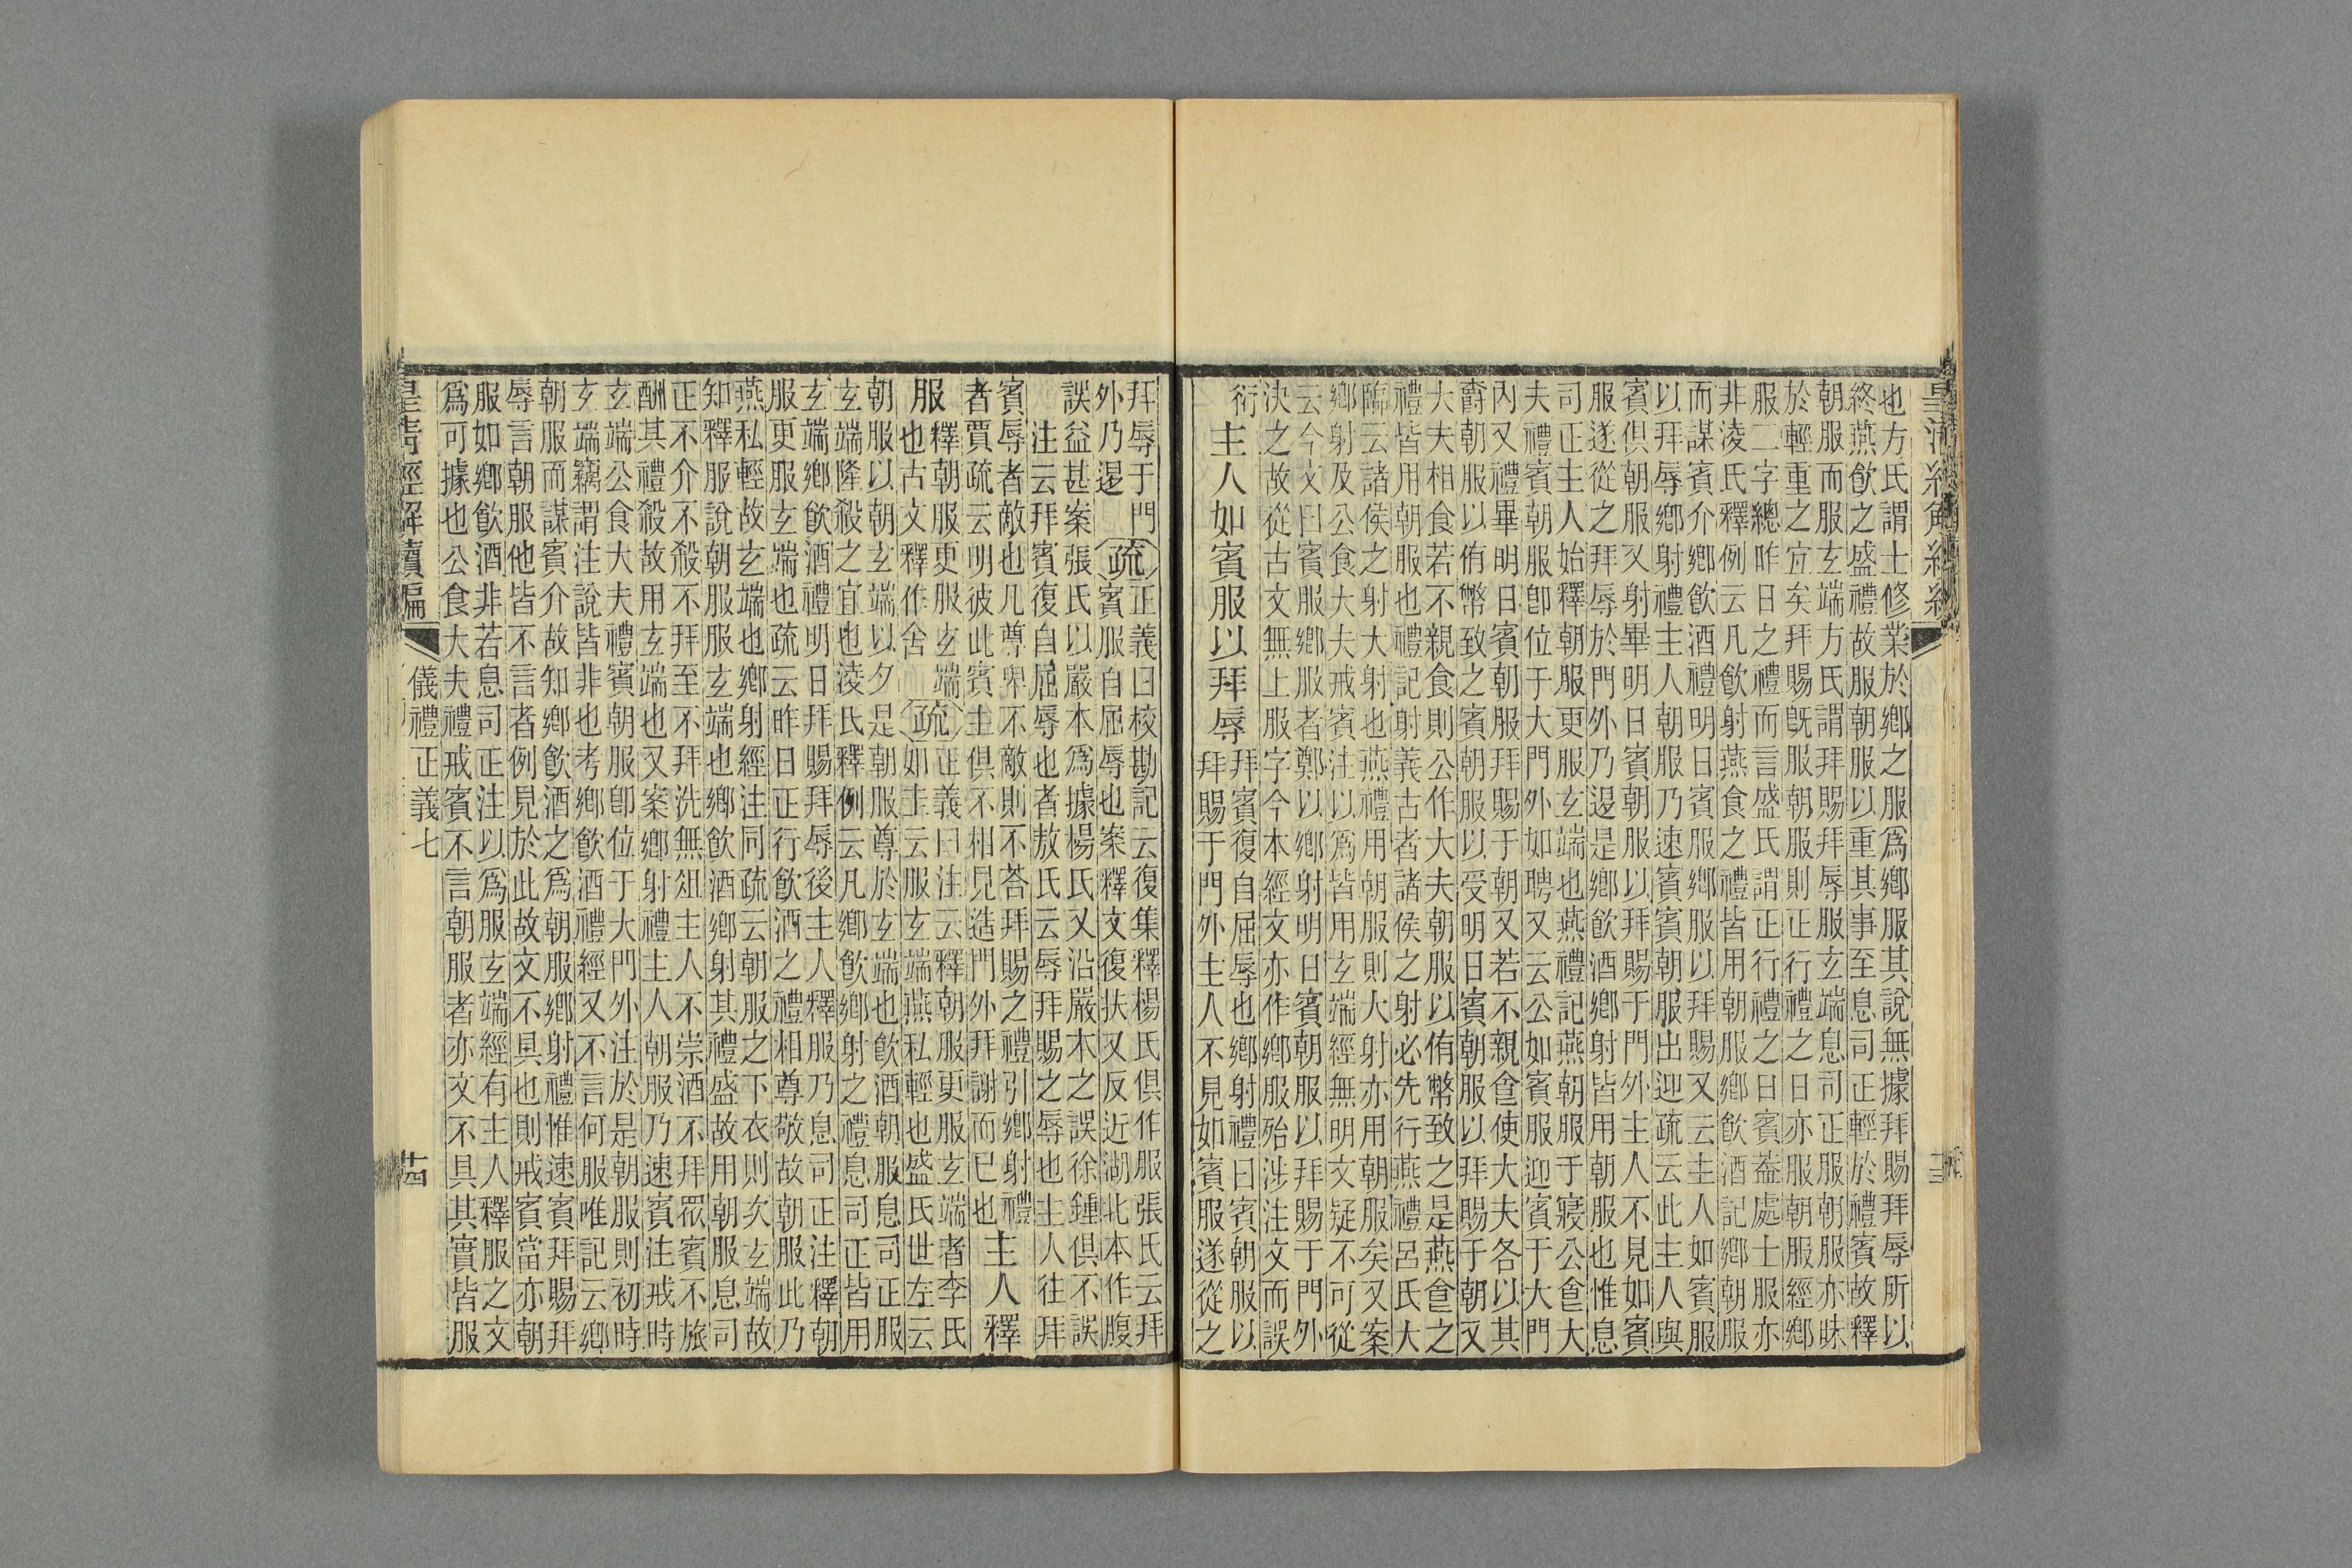 也方氏謂士修業於鄉之服爲鄉服其說無據拜賜拜辱所以
終燕飲之盛禮故服朝服以重其事至息司正輕於禮賓故釋
朝服而服玄端方氏謂拜賜拜辱服玄端息司正服朝服亦昧
於輕重之宜矣拜賜旣服朝服則正行禮之日亦服朝服經鄉
服二字總昨日之禮而言盛氏謂正行禮之日賓葢處士服亦
非淩氏釋例云凡飲射燕食之禮皆用朝服鄉飲酒記鄉朝服
而謀賓介鄉飲酒禮明日賓服鄉服以拜賜又云主人如賓服
以拜辱鄉射禮主人朝服乃速賓賓朝服出迎疏云此主人與
賓俱朝服又射畢明日賓朝服以拜賜于門外主人不見如賓
服遂從之拜辱於門外乃退是鄉飲酒鄉射皆用朝服也惟息
司正主人始釋朝服更服玄端也燕禮記燕朝服于寢公食大
夫禮賓朝服卽位于大門外如聘又云公如賓服迎賓于大門
內又禮畢明日賓朝服拜賜于朝又若不親食使大夫各以其
爵朝服以侑幣致之賓朝服以受明日賓朝服以拜賜于朝又
大夫相食若不親食則公作大夫朝服以侑幣致之是燕食之
禮皆用朝服也禮記射義古者諸侯之射必先行燕禮呂氏大
臨云諸侯之射大射也燕禮用朝服則大射亦用朝服矣又案
鄉射及公食大夫戒賓注以爲皆用玄端經無明文疑不可從
云今文曰賓服鄉服者鄭以鄉射明日賓朝服以拜賜于門外
決之故從古文無上服字今本經文亦作鄉服殆涉注文而誤
衍
主人如賓服以拜辱
拜賓復自屈辱也鄉射禮曰賓朝服以
拜賜于門外主人不見如賓服遂從之
拜辱于門
外乃退
疏
正義曰校勘記云復集釋楊氏俱作服張氏云拜
賓服自屈辱也案釋文復扶又反近湖北本作腹
誤益甚案張氏以嚴本爲據楊氏又沿嚴本之誤徐鍾俱不誤
注云拜賓復自屈辱也者敖氏云辱拜賜之辱也主人往拜
賓辱者敵也凡尊卑不敵則不荅拜賜之禮引鄉射禮
者賈疏云明彼此賓主俱不相見造門外拜謝而已也
主人釋
服
釋朝服更服玄端
也古文釋作舍
疏
正義曰注云釋朝服更服玄端者李氏
如圭云服玄端燕私輕也盛氏世左云
朝服以朝玄端以夕是朝服尊於玄端也飲酒朝服息司正服
玄端隆殺之宜也淩氏釋例云凡鄉飲鄉射之禮息司正皆用
玄端鄉飲酒禮明日拜賜拜辱後主人釋服乃息司正注釋朝
服更服玄端也疏云昨日正行飲酒之禮相尊敬故朝服此乃
燕私輕故玄端也鄉射經注同疏云朝服之下衣則次玄端故
知釋服說朝服服玄端也鄉飲酒鄉射其禮盛故用朝服息司
正不介不殺不拜至不拜洗無俎主人不崇酒不拜衆賓不旅
酬其禮殺故用玄端也又案鄉射禮主人朝服乃速賓注戒時
玄端公食大夫禮賓朝服卽位于大門外注於是朝服則初時
玄端竊謂注說皆非也考鄉飲酒禮經又不言何服唯記云鄉
朝服而謀賓介故知鄉飲酒之爲朝服鄉射禮惟速賓拜賜拜
辱言朝服他皆不言者例見於此故文不具也則戒賓當亦朝
服如鄉飲酒非若息司正注以爲服玄端經有主人釋服之文
爲可據也公食大夫禮戒賓不言朝服者亦文不具其實皆服
皇清經解續編
儀禮正義七